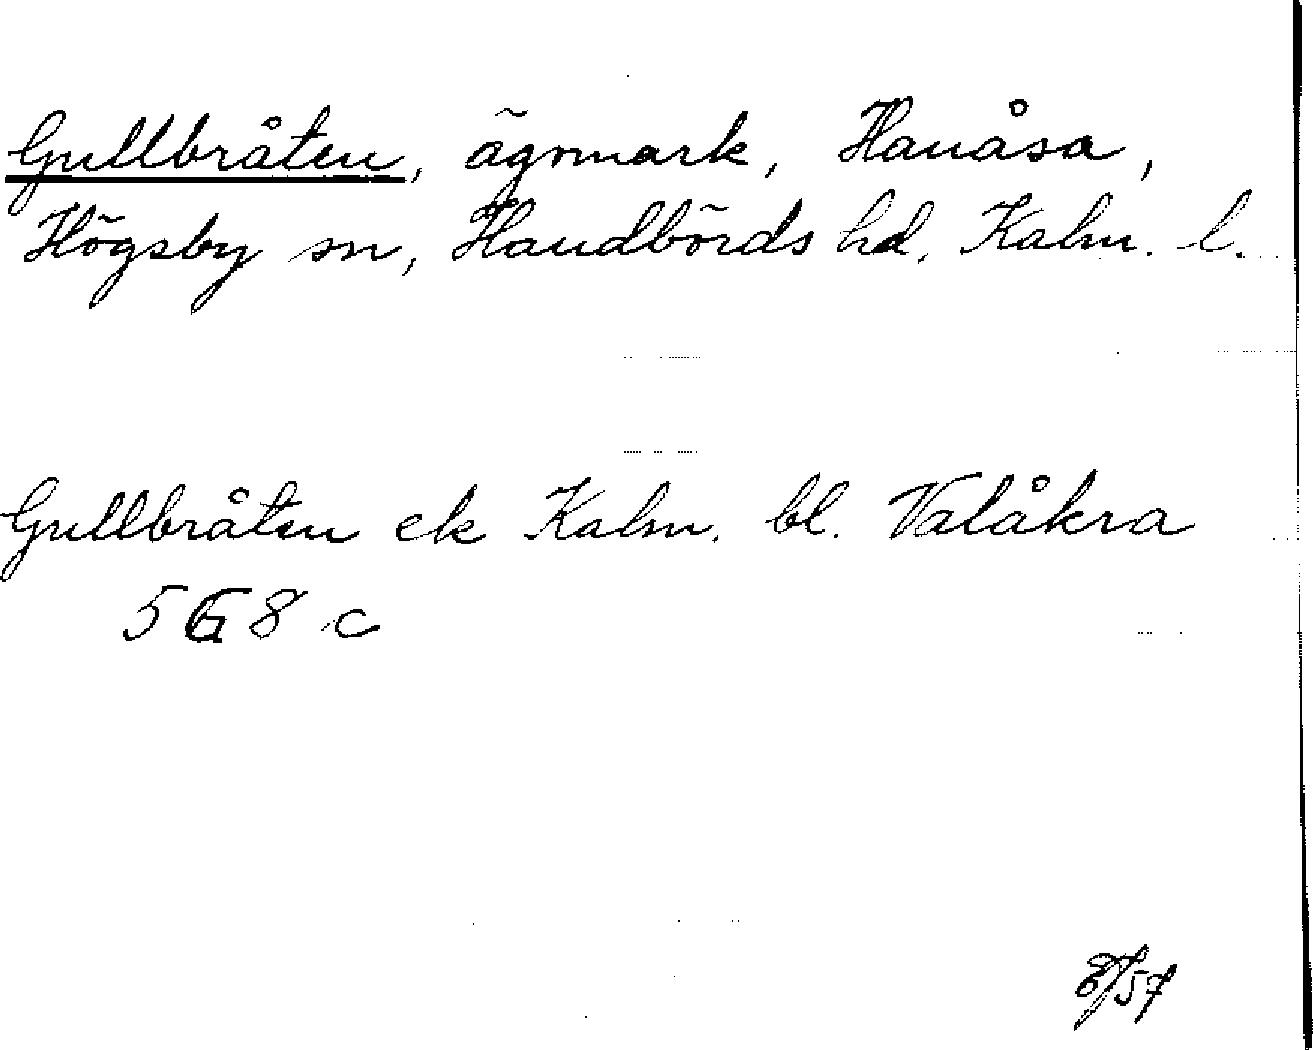 Gullbråten, ägomark, Hanåsa,
Högsby sn, Handbörds hd, Kalm. l.
Gullbråten ek Kalm. bl. Valåkra
5G8c